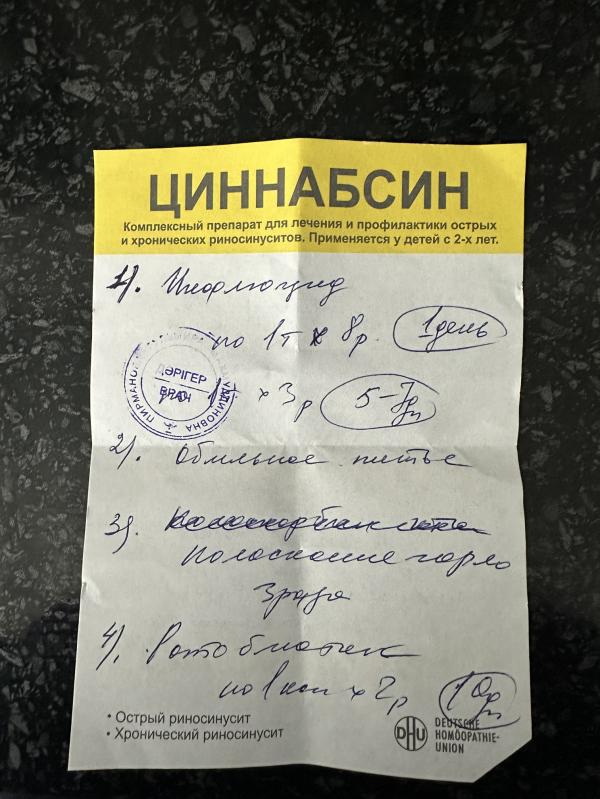 ЦИННАБСИН
Комплексный препарат для лечения и профилактики острых
и хронических риносинуситов. Применяется у детей с 2-х лет.
1). Инфлюцид
по 1т х 8р. 1 день
ДӘРІГЕР
ВРАЧ
х 3р 5-7дн
2). Обильное питье
3).
Полоскание горло
3 раза
4). Ротобиотик
по 1 кап х 2р 10дн
• Острый риносинусит
• Хронический риносинусит
DHU
DEUTSCHE
HOMÖOPATHIE-
UNION